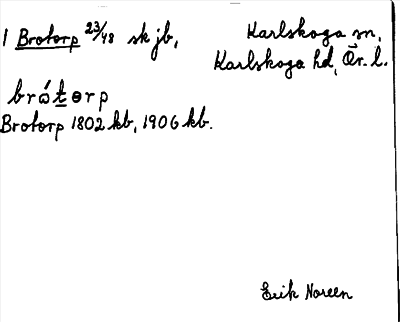 1 Brotorp 23/48 sk jb, Karlskoga sn,
Karlskoga hd, Ör. l.
brώtɵrp
Brotorp 1802 kb, 1906 kb.
Erik Noreen